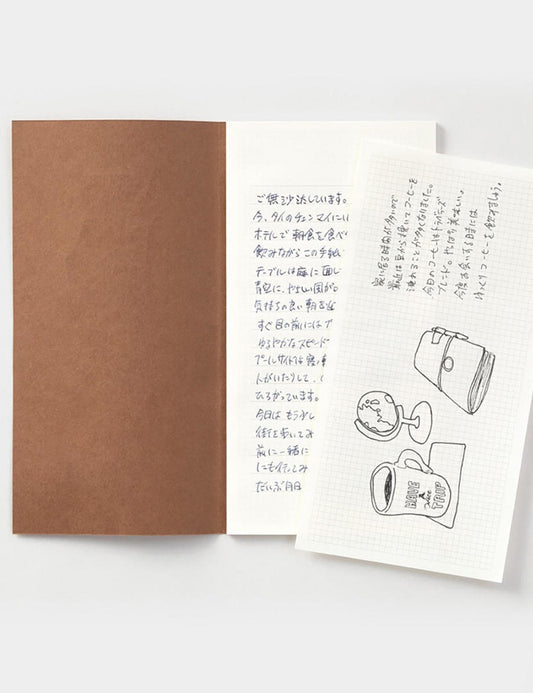 ご無沙汰しています。
今、タイのチェンマイにい
ホテルで朝食を食べ
飲みながらこの手紙
テーブルは庭に面し
青空に、やさしい風が
気持ちの良い朝を
すぐ目の前にはプ
ゆるやかなスピード
プールサイトは
人がいたりして、
ひろがっています。
今日はもう少し
街を歩いてみ
前に一緒に
にも行ってみ
だいぶ月日
家に居る時間が多いので
最近は豆から挽いてコーヒーを
淹れることが多くなりました。
今日のコーヒーはトラベラーズ
ブレンド。やっぱり美味しい。
今度お会いする時には
ゆっくりコーヒーを飲みましょう。
HAVE
A
Nice
TRIP